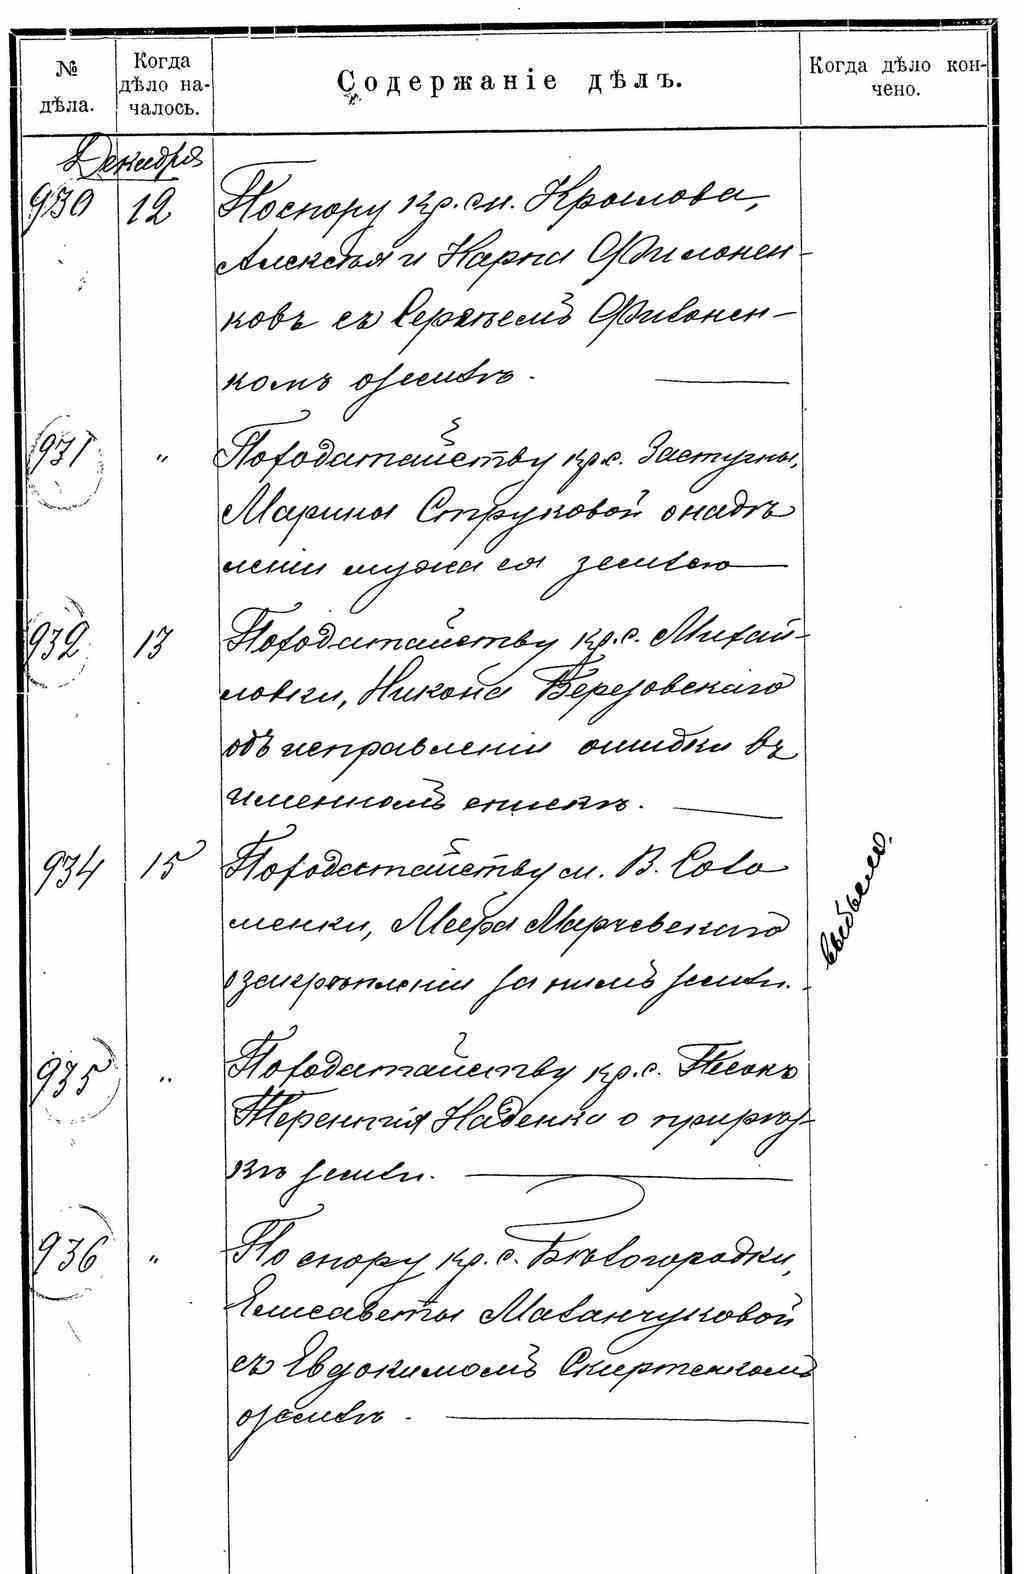 № дѣла.
Когда дѣло началось.
Содержаніе дѣлъ.
Когда дѣло кончено.
Декабря
930 12 По спору кр. сл. Крылова,
Алексѣя и Карпа Филонен-
ковъ съ Сергѣемъ Филонен-
комъ о землѣ.
931 " По ходатайству кр. с. Застугны,
Марины Струковой о надѣ
леніи мужа ея землею
932 13 По ходатайству кр. с. Михай-
ловки, Никона Березовскаго
объ исправленіи ошибки въ
именномъ спискѣ.
934 15 По ходатайству м. В. Соло
менки, Меера Марчевскаго
о закрѣпленіи за нимъ земли.
выбыло.
935 " По ходатайству кр. с. Песокъ
Терентія Наденко о прирѣз-
кѣ земли.
936 " По спору кр. с. Бѣлогородки,
Елисаветы Маланчуковой
съ Евдокимомъ Скиртенкомъ
о землѣ.